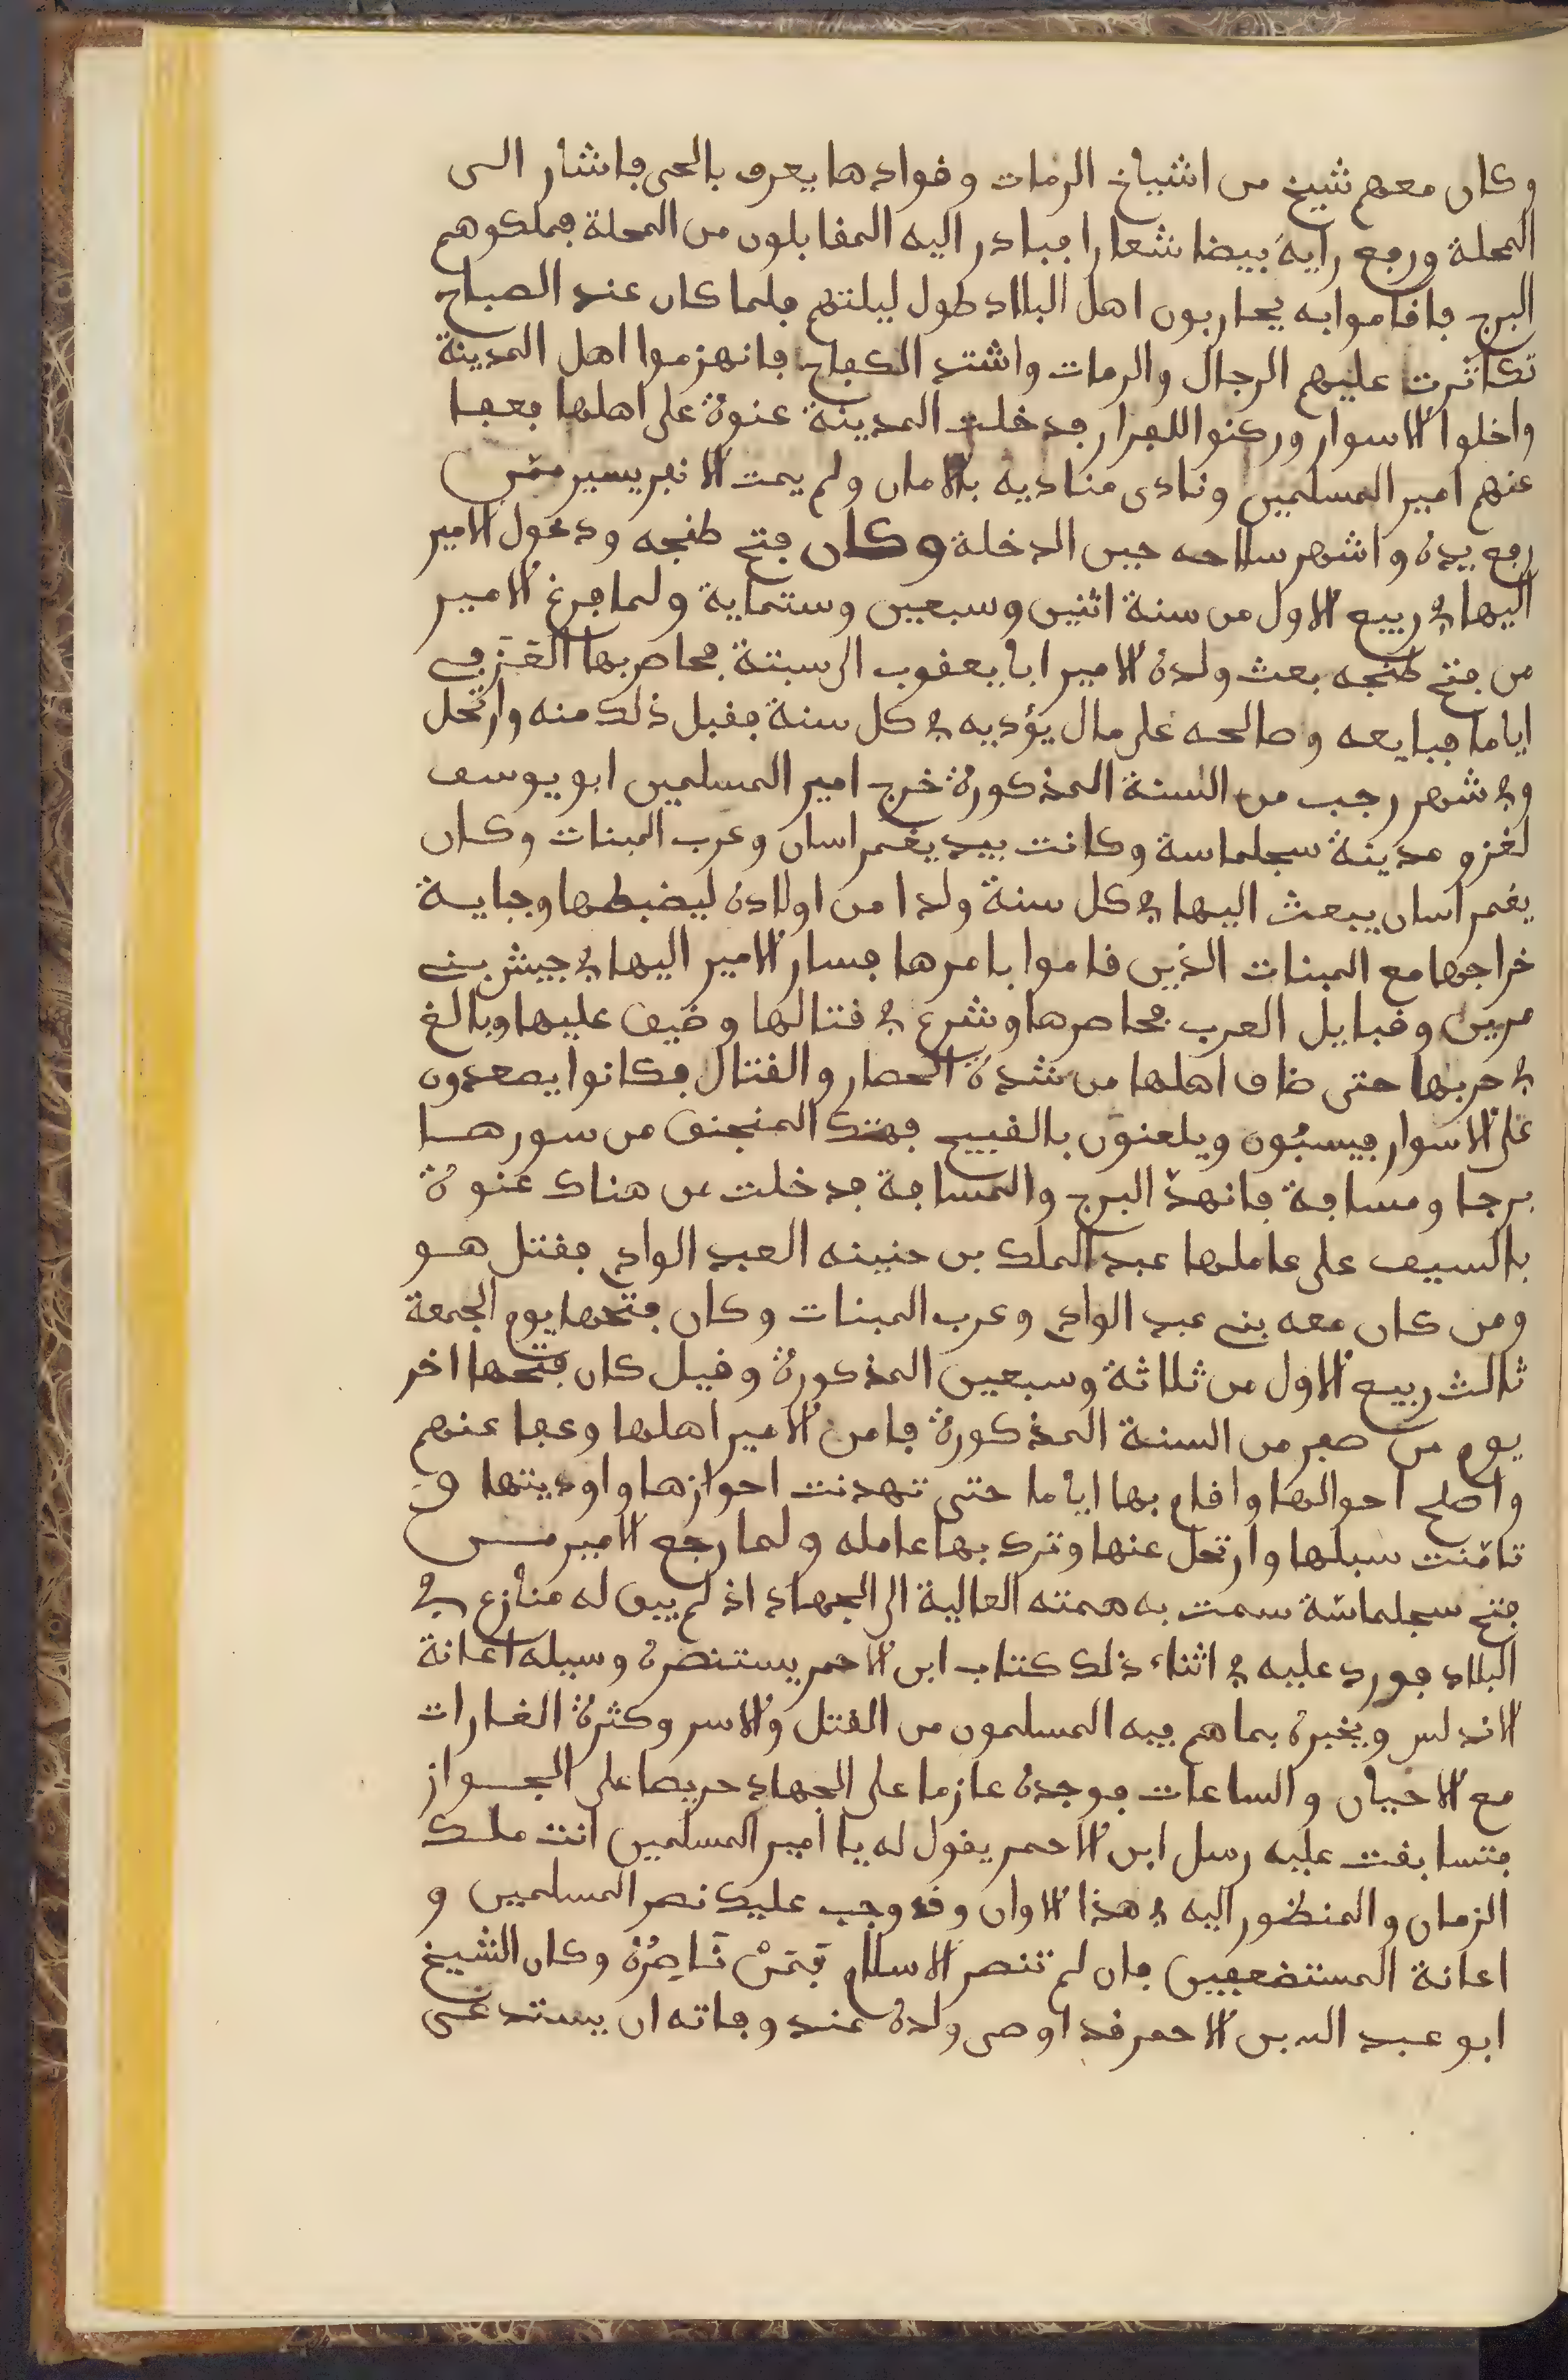 وكان معهم شيخ من اشياخ الرمات وقوادها يعرف بالحى فاشار الى
المحلة ورفع راية بيضا شعارا فبادر اليه المقابلون من المحلة فملكوهم
البرج فاقاموا به يحاربون اهل البلاد طول ليلتهم فلما كان عند الصباح
تكاثرت عليهم الرجال والرمات واشتد الكفاح فانهزموا اهل المدينة
واخلوا الاسوار وركنوا للفرار فدخلت المدينة عنوة على اهلها فعفا
عنهم امير المسلمين ونادى مناديه بالامان ولم يمت الا نفر يسير ممن
رفع يده واشهر سلاحه حين الدخلة وكان فتح طنجه ودخول الامير
اليها في ربيع الاول من سنة اثنين وسبعين وستماية ولما فرغ الامير
من فتح طنجه بعث ولده الامير ابا يعقوب الى سبتة فحاصر بها العَزَفي
اياما فبايعه وصالحه على مال يؤديه في كل سنة فقبل ذلك منه وارتحل
وفي شهر رجب من السنة المذكورة خرج امير المسلمين ابو يوسف
لغزو مدينة سجلماسة وكانت بيد يغمراسان وعرب المنبات وكان
يغمراسان يبعث اليها في كل سنة ولدا من اولاده ليضبطها وجباية
خراجها مع المنبات الذين قاموا بامرها فسار الامير اليها في جيش بني
مرين وقبايل العرب فحاصرها وشرع في قتالها وضيق عليها وبالغ
في حربها حتى ضاق اهلها من شدة الحصار والقتال فكانوا يصعدون
على الاسوار فيسبُّون ويلعنوْن بالقبيح فهتك المنجنق من سورها
برجا ومسافة فانهدّ البرج والمسافة فدخلت من هناك عنوة
بالسيف على عاملها عبد الملك بن حنينه العبد الوادي فقتل هو
ومن كان معه بني عبد الوادي وعرب المنبات وكان فتحها يوم الجمعة
ثالث ربيع الاول من ثلاثة وسبعين المذكورة وقيل كان فتحها اخر
يوم من صفر من السنة المذكورة فامن الامير اهلها وعفا عنهم
واصلح احوالها واقام بها اياما حتى تهدنت احوازها واوديتها و
تامّنت سبلها وارتحل عنها وترك بها عامله ولما رجع الامير من
فتح سجلماسة سمت به همته العالية الى الجهاد اذ لم يبق له منازع في
البلاد فورد عليه في اثناء ذلك كتاب ابن الاحمر يستنصره وسيله اعانة
الاندلس ويخبره بما هم فيه المسلمون من القتل والاسر وكثرة الغارات
مع الاحيان والساعات فوجده عازما على الجهاد حريصا على الجواز
فتسابقت عليه رسل ابن الاحمر يقول له يا امير المسلمين انت ملك
الزمان والمنظور اليه في هذا الاوان وقد وجب عليك نصر المسلمين و
اعانة المستضعفين فان لم تنصر الاسلام فَمَنْ نَاصِرُهُ وكان الشيخ
ابو عبد الله بن الاحمر قد اوصى ولده عند وفاته ان يستدعى